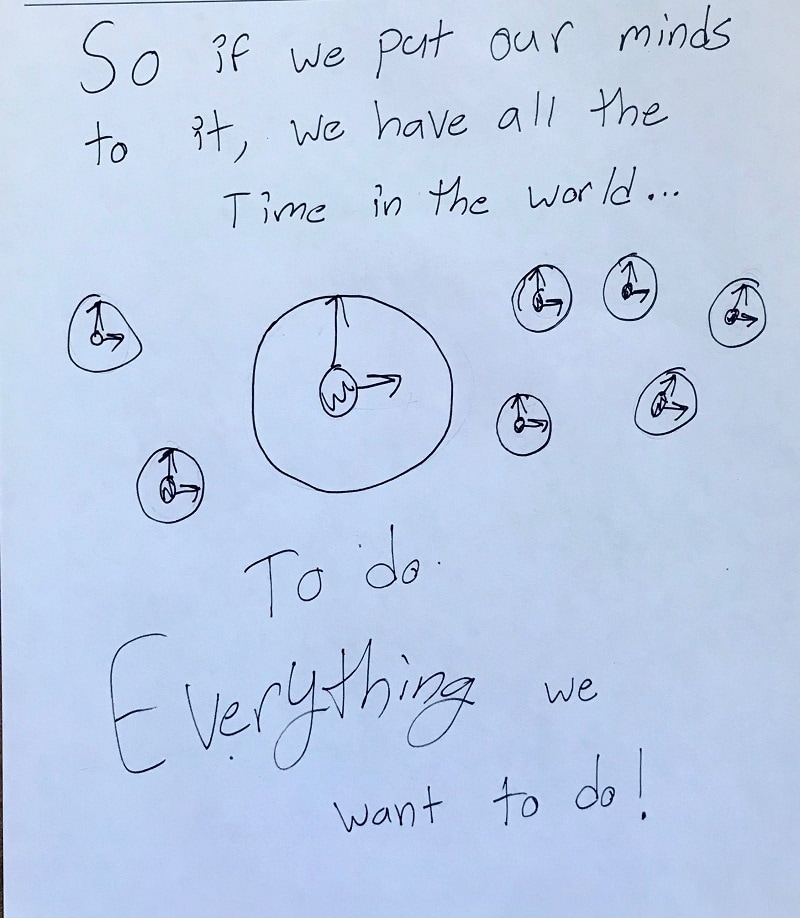 So if we put our minds
to it, we have all the
Time in the world...
W
To do.
Everything we
want to do!